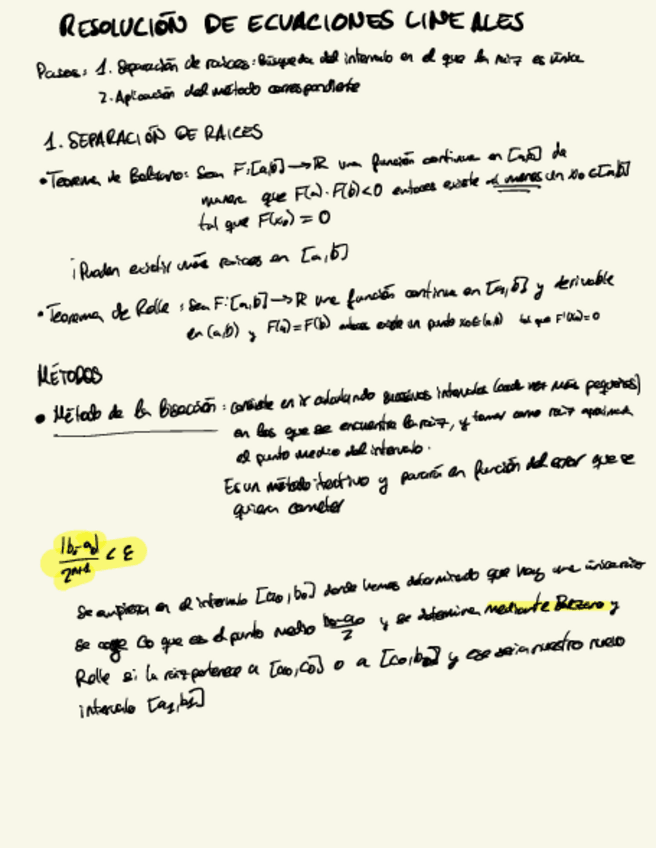 RESOLUCIÓN DE ECUACIONES LINEALES
Pasos: 1. Separación de raíces: Búsqueda del intervalo en el que la raíz es única
2. Aplicación del método correspondiente
1. SEPARACIÓN DE RAICES
• Teorema de Bolzano: Sea F:[a,b] → R una función continua en [a,b] de
manera que F(a)·F(b)<0 entonces existe al menos un x₀ ∈ [a,b]
tal que F(x₀) = 0
¡Pueden existir más raíces en [a,b]
• Teorema de Rolle: Sea F:[a,b] → R una función continua en [a,b] y derivable
en (a,b) y F(a)=F(b) entonces existe un punto x₀∈(a,b) tal que F'(x₀)=0
MÉTODOS
• Método de la Bisección: consiste en ir calculando sucesivos intervalos (cada vez más pequeños)
en los que se encuentra la raíz, y tomar como raíz aproximada
el punto medio del intervalo.
Es un método iterativo y parará en función del error que se
quiera cometer
|b₀-a₀| / 2ⁿ⁺¹ < ε
Se empieza en el intervalo [a₀, b₀] donde hemos determinado que hay una única raíz
se coge c₀ que es el punto medio b₀-a₀ / 2 y se determina mediante Bolzano y
Rolle si la raíz pertenece a [a₀,c₀] o a [c₀,b₀] y ese sería nuestro nuevo
intervalo [a₁,b₁]